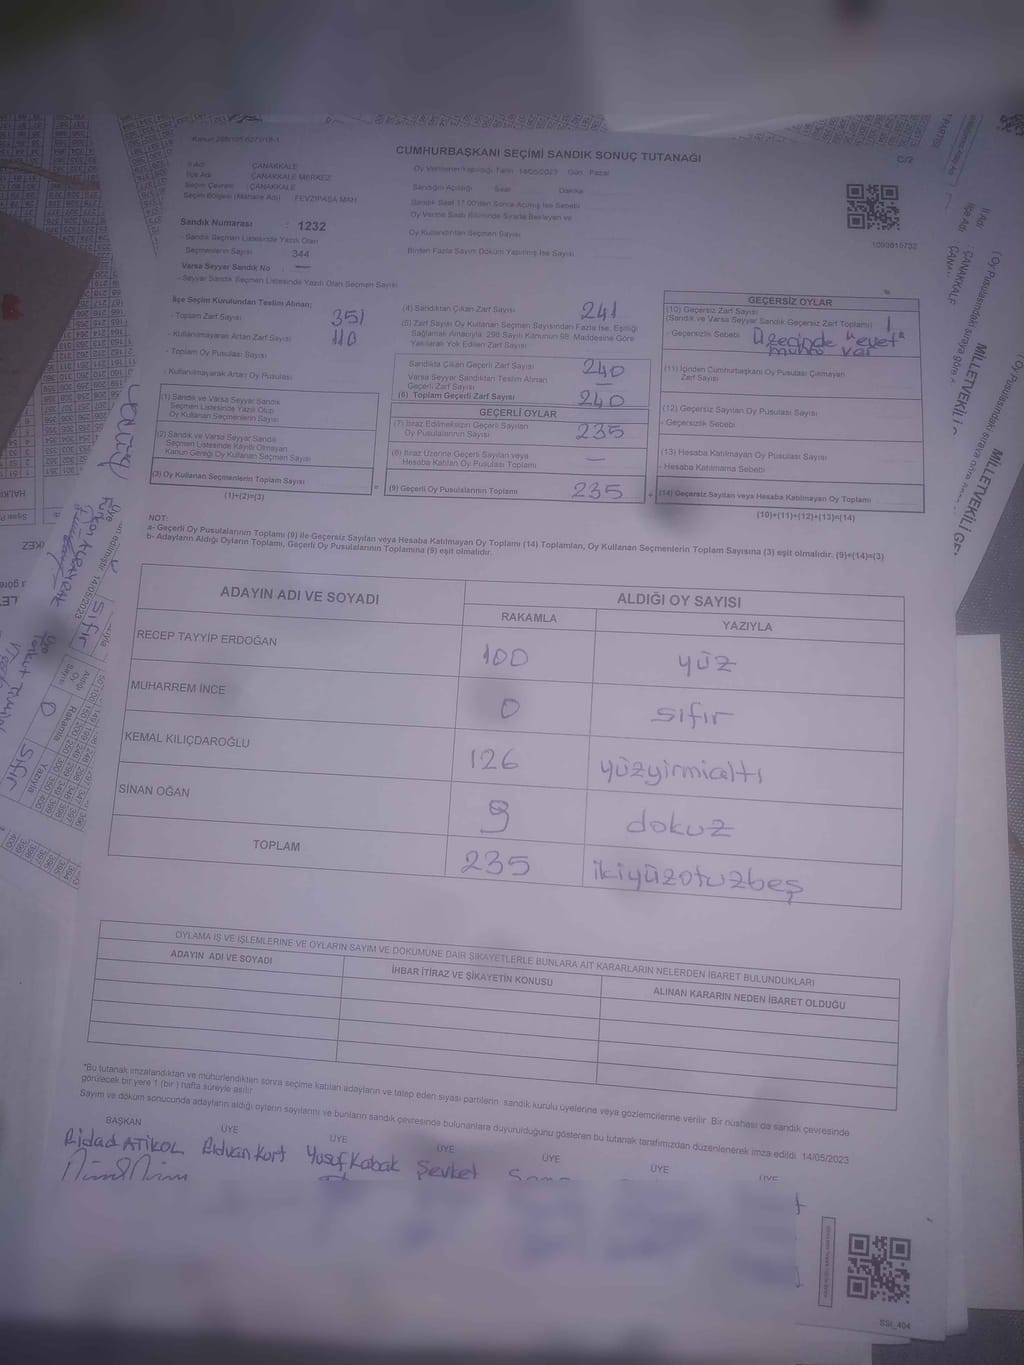 CUMHURBAŞKANI SEÇİMİ SANDIK SONUÇ TUTANAĞI
C/2
İl Adı : ÇANAKKALE
İlçe Adı : ÇANAKKALE MERKEZ
Seçim Çevresi : ÇANAKKALE
Seçim Bölgesi (Mahalle Adı) : FEVZİPAŞA MAH.
Sandık Numarası : 1232
- Sandık Seçmen Listesinde Yazılı Olan
Seçmenlerin Sayısı : 344
Varsa Seyyar Sandık No : —
- Seyyar Sandık Seçmen Listesinde Yazılı Olan Seçmen Sayısı
Oy Vermenin Yapıldığı Tarih : 14/05/2023 Gün : Pazar
Sandığın Açıldığı Saat Dakika
Sandık Saat 17.00'den Sonra Açılmış İse Sebebi
Oy Verme Saati Bitiminde Sırada Bekleyen ve
Oy Kullandırılan Seçmen Sayısı
Birden Fazla Sayım Döküm Yapılmış İse Sayısı
1093810732
İlçe Seçim Kurulundan Teslim Alınan;
- Toplam Zarf Sayısı 351
- Kullanılmayarak Artan Zarf Sayısı 110
- Toplam Oy Pusulası Sayısı
- Kullanılmayarak Artan Oy Pusulası
(1) Sandık ve Varsa Seyyar Sandık
Seçmen Listesinde Yazılı Olup
Oy Kullanan Seçmenlerin Sayısı
(2) Sandık ve Varsa Seyyar Sandık
Seçmen Listesinde Kayıtlı Olmayan
Kanun Gereği Oy Kullanan Seçmen Sayısı
(3) Oy Kullanan Seçmenlerin Toplam Sayısı
(1)+(2)=(3)
(4) Sandıktan Çıkan Zarf Sayısı 241
(5) Zarf Sayısı Oy Kullanan Seçmen Sayısından Fazla İse, Eşitliği
Sağlamak Amacıyla, 298 Sayılı Kanunun 98. Maddesine Göre
Yakılarak Yok Edilen Zarf Sayısı
Sandıkta Çıkan Geçerli Zarf Sayısı 240
Varsa Seyyar Sandıktan Teslim Alınan
Geçerli Zarf Sayısı —
(6) Toplam Geçerli Zarf Sayısı 240
GEÇERLİ OYLAR
(7) İtiraz Edilmeksizin Geçerli Sayılan
Oy Pusulalarının Sayısı 235
(8) İtiraz Üzerine Geçerli Sayılan veya
Hesaba Katılan Oy Pusulası Toplamı —
= (9) Geçerli Oy Pusulalarının Toplamı 235 +
GEÇERSİZ OYLAR
(10) Geçersiz Zarf Sayısı
(Sandık ve Varsa Seyyar Sandık Geçersiz Zarf Toplamı) 1
- Geçersizlik Sebebi Üzerinde "evet"
mührü var
(11) İçinden Cumhurbaşkanı Oy Pusulası Çıkmayan
Zarf Sayısı
(12) Geçersiz Sayılan Oy Pusulası Sayısı
- Geçersizlik Sebebi
(13) Hesaba Katılmayan Oy Pusulası Sayısı
- Hesaba Katılmama Sebebi
(14) Geçersiz Sayılan veya Hesaba Katılmayan Oy Toplamı
(10)+(11)+(12)+(13)=(14)
NOT:
a- Geçerli Oy Pusulalarının Toplamı (9) ile Geçersiz Sayılan veya Hesaba Katılmayan Oy Toplamı (14) Toplamları, Oy Kullanan Seçmenlerin Toplam Sayısına (3) eşit olmalıdır. (9)+(14)=(3)
b- Adayların Aldığı Oyların Toplamı, Geçerli Oy Pusulalarının Toplamına (9) eşit olmalıdır.
ADAYIN ADI VE SOYADI ALDIĞI OY SAYISI
RAKAMLA YAZIYLA
RECEP TAYYİP ERDOĞAN 100 yüz
MUHARREM İNCE 0 sıfır
KEMAL KILIÇDAROĞLU 126 yüzyirmialtı
SİNAN OĞAN 9 dokuz
TOPLAM 235 ikiyüzotuzbeş
OYLAMA İŞ VE İŞLEMLERİNE VE OYLARIN SAYIM VE DÖKÜMÜNE DAİR ŞİKAYETLERLE BUNLARA AİT KARARLARIN NELERDEN İBARET BULUNDUKLARI
ADAYIN ADI VE SOYADI İHBAR İTİRAZ VE ŞİKAYETİN KONUSU ALINAN KARARIN NEDEN İBARET OLDUĞU
*Bu tutanak imzalandıktan ve mühürlendikten sonra seçime katılan adayların ve talep eden siyasi partilerin sandık kurulu üyelerine veya gözlemcilerine verilir. Bir nüshası da sandık çevresinde
görülecek bir yere 1 (bir) hafta süreyle asılır.
Sayım ve döküm sonucunda adayların aldığı oyların sayılarını ve bunların sandık çevresinde bulunanlara duyurulduğunu gösteren bu tutanak tarafımızdan düzenlenerek imza edildi. 14/05/2023
BAŞKAN ÜYE ÜYE ÜYE ÜYE ÜYE ÜYE
Ridvan Kort Yusuf Kabak Şevket
SSI_404
MİLLETVEKİLİ
MİLLETVEKİLİ GE